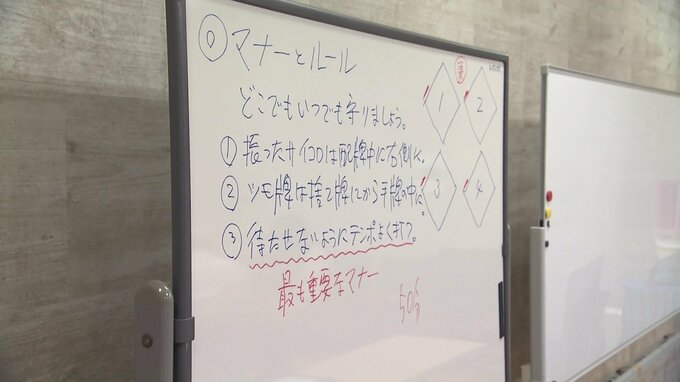 ⓪ マナーとルール
どこでもいつでも守りましょう。
① 振ったサイコロは配牌中に右側へ。
② ツモ牌は捨て牌してから手牌の中に。
③ 待たせないようにテンポよく打つ。
最も重要なマナー
50分
東
1
2
3
4